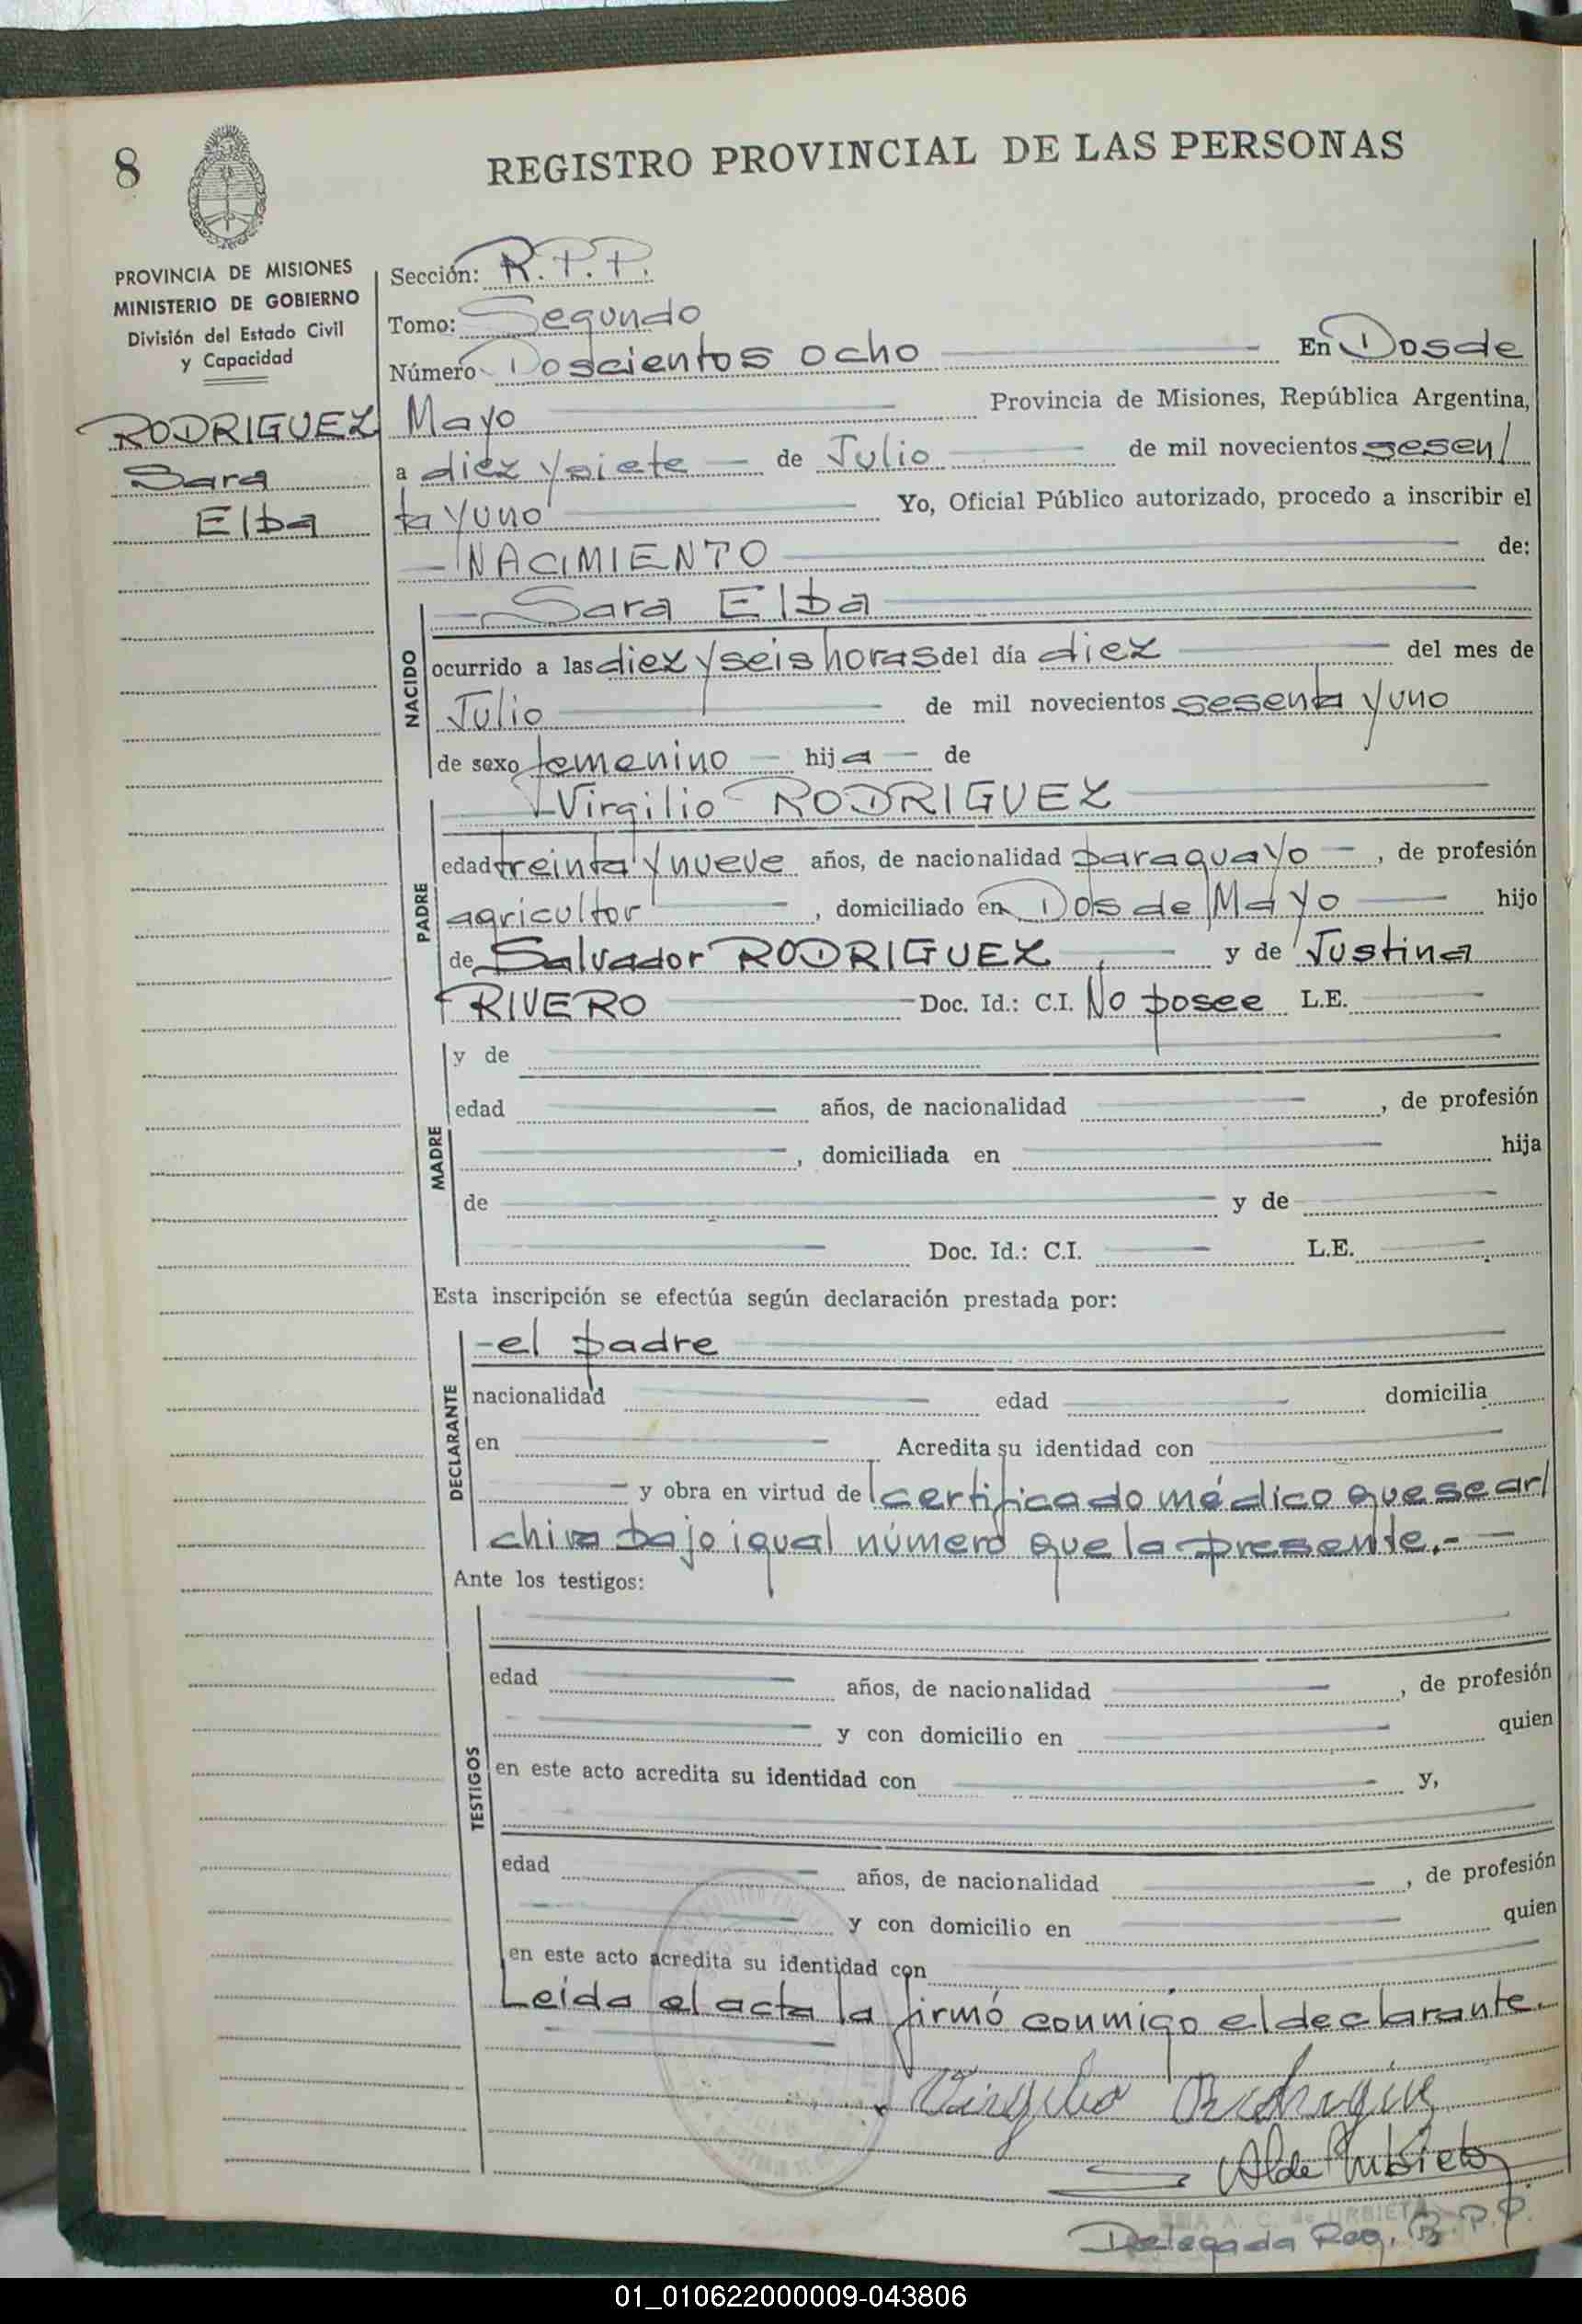 8
REGISTRO PROVINCIAL DE LAS PERSONAS
PROVINCIA DE MISIONES
MINISTERIO DE GOBIERNO
División del Estado Civil
y Capacidad
RODRIGUEZ
Sara
Elba
Sección: R.P.P.
Tomo: Segundo
Número Doscientos ocho En Dos de
Mayo Provincia de Misiones, República Argentina,
a diez y siete de Julio de mil novecientos sesen/
ta y uno Yo, Oficial Público autorizado, procedo a inscribir el
NACIMIENTO de:
NACIDO
Sara Elba
ocurrido a las diez y seis horas del día diez del mes de
Julio de mil novecientos sesenta y uno
de sexo femenino hija de
PADRE
Virgilio RODRIGUEZ
edad treinta y nueve años, de nacionalidad paraguayo, de profesión
agricultor, domiciliado en Dos de Mayo hijo
de Salvador RODRIGUEZ y de Justina
RIVERO Doc. Id.: C.I. No posee L.E.
MADRE
y de
edad años, de nacionalidad , de profesión
, domiciliada en hija
de y de
Doc. Id.: C.I. L.E.
Esta inscripción se efectúa según declaración prestada por:
DECLARANTE
-el padre
nacionalidad edad domicilia
en Acredita su identidad con
y obra en virtud de certificado médico que se ar/
chiva bajo igual número que la presente.-
Ante los testigos:
TESTIGOS
edad años, de nacionalidad , de profesión
y con domicilio en quien
en este acto acredita su identidad con y,
edad años, de nacionalidad , de profesión
y con domicilio en quien
en este acto acredita su identidad con
Leída el acta la firmó conmigo el declarante.
Virgilio Rodriguez
A. C. de URBIETA
Delegada Reg. R.P.P.
01_010622000009-043806